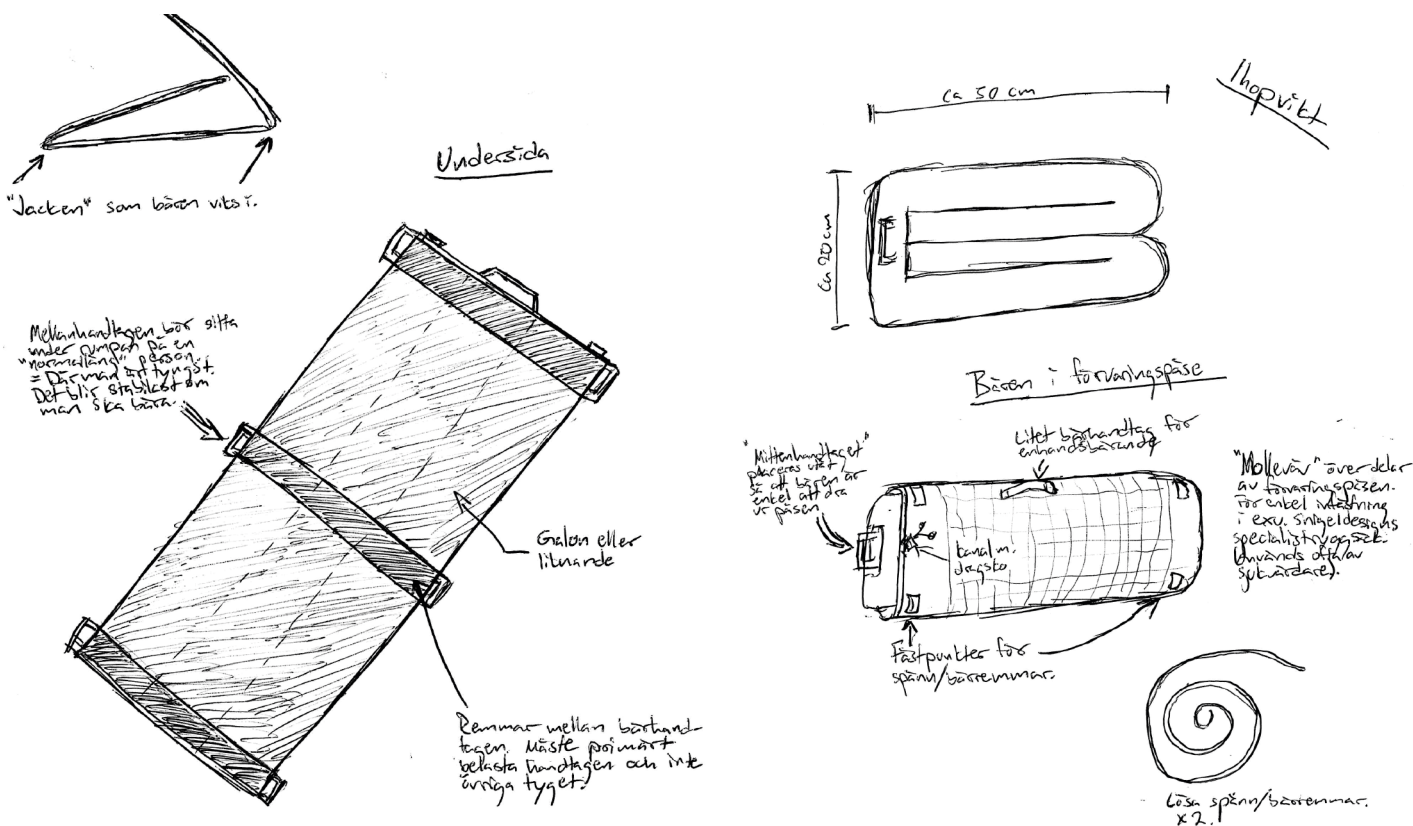 "Jacken" som båren viks i.
Undersida
Mellanhandtagen bör sitta
under rumpan på en
"normallång" person.
= Där man är tyngst.
Det blir stabilast om
man ska bära.
Galon eller
liknande
Remmar mellan bärhand-
tagen. Måste primärt
belasta handtagen och inte
övriga tyget.
Ihopvikt
ca 50 cm
ca 20 cm
Båren i förvaringspåse
"Mittenhandtaget"
placeras vikt
så att båren är
enkel att dra
ur påsen.
Litet bärhandtag för
enhandsbärande
kanal m.
dragsko
"Molleväv" över delar
av förvaringspåsen.
För enkel infästning
i exv. Snigeldesigns
specialistryggsäck.
(används ofta av
sjukvårdare).
Fästpunkter för
spänn/bärremmar.
Lösa spänn/bärremmar.
x2.